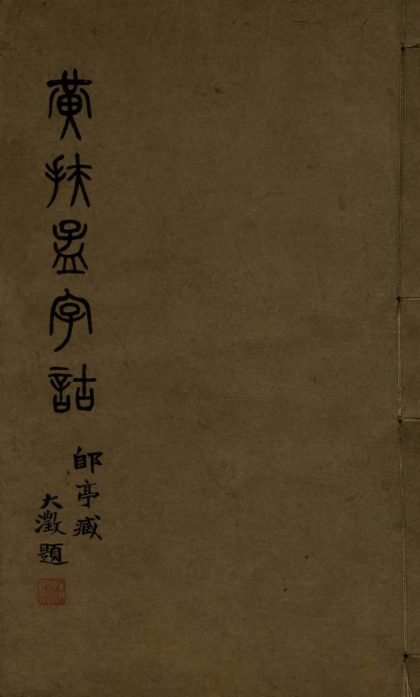 黃扶孟字詁
郘亭臧
大澂題